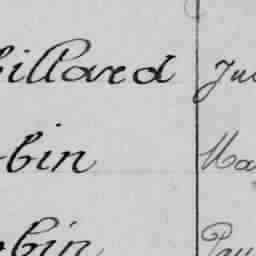 billard Jul
bin Ma
bin Pau